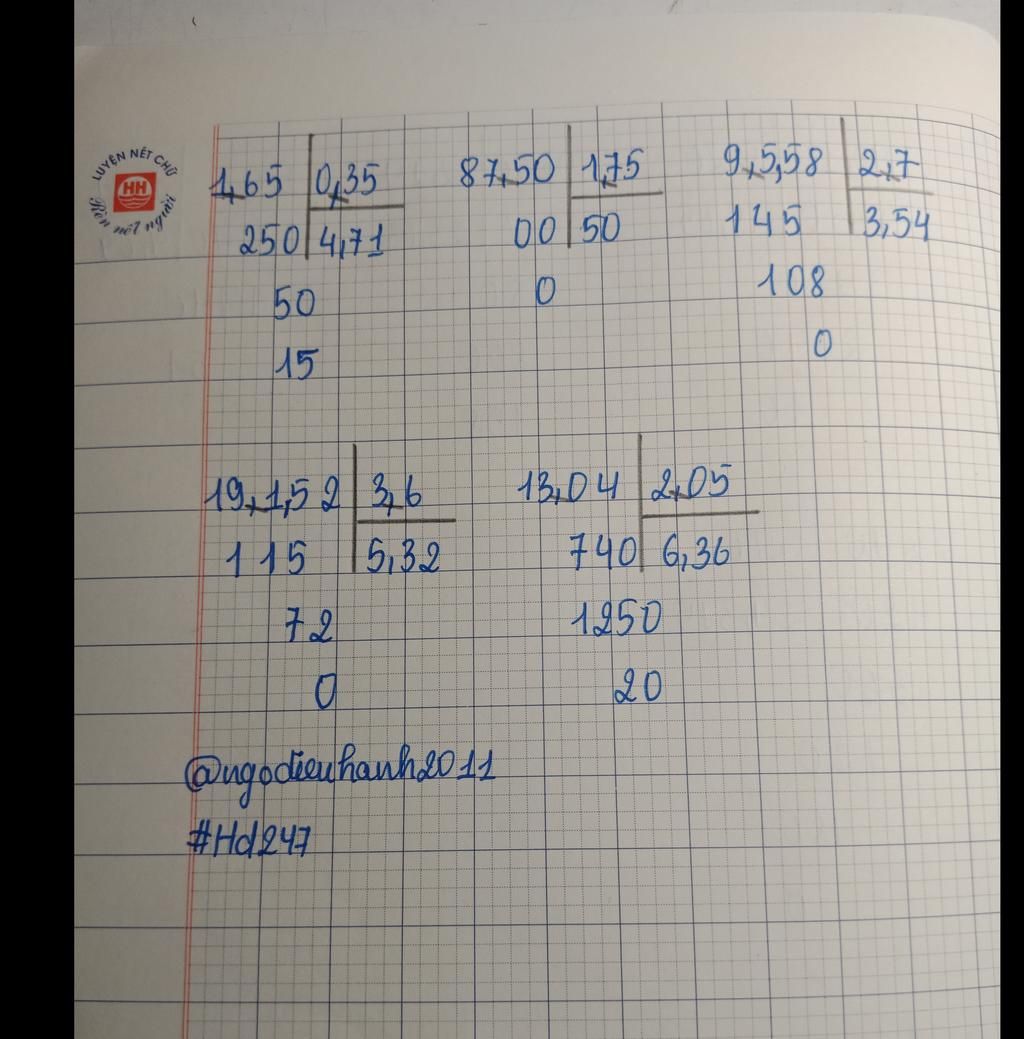 LUYỆN NÉT CHỮ
HH
Rèn nết người
1,65 0,35
250 4,71
50
15
87,50 1,75
00 50
0
9,5,58 2,7
145 3,54
108
0
19,1,52 3,6
115 5,32
72
0
13,04 2,05
740 6,36
1250
20
@ngodieuhanh2011
#Hd247